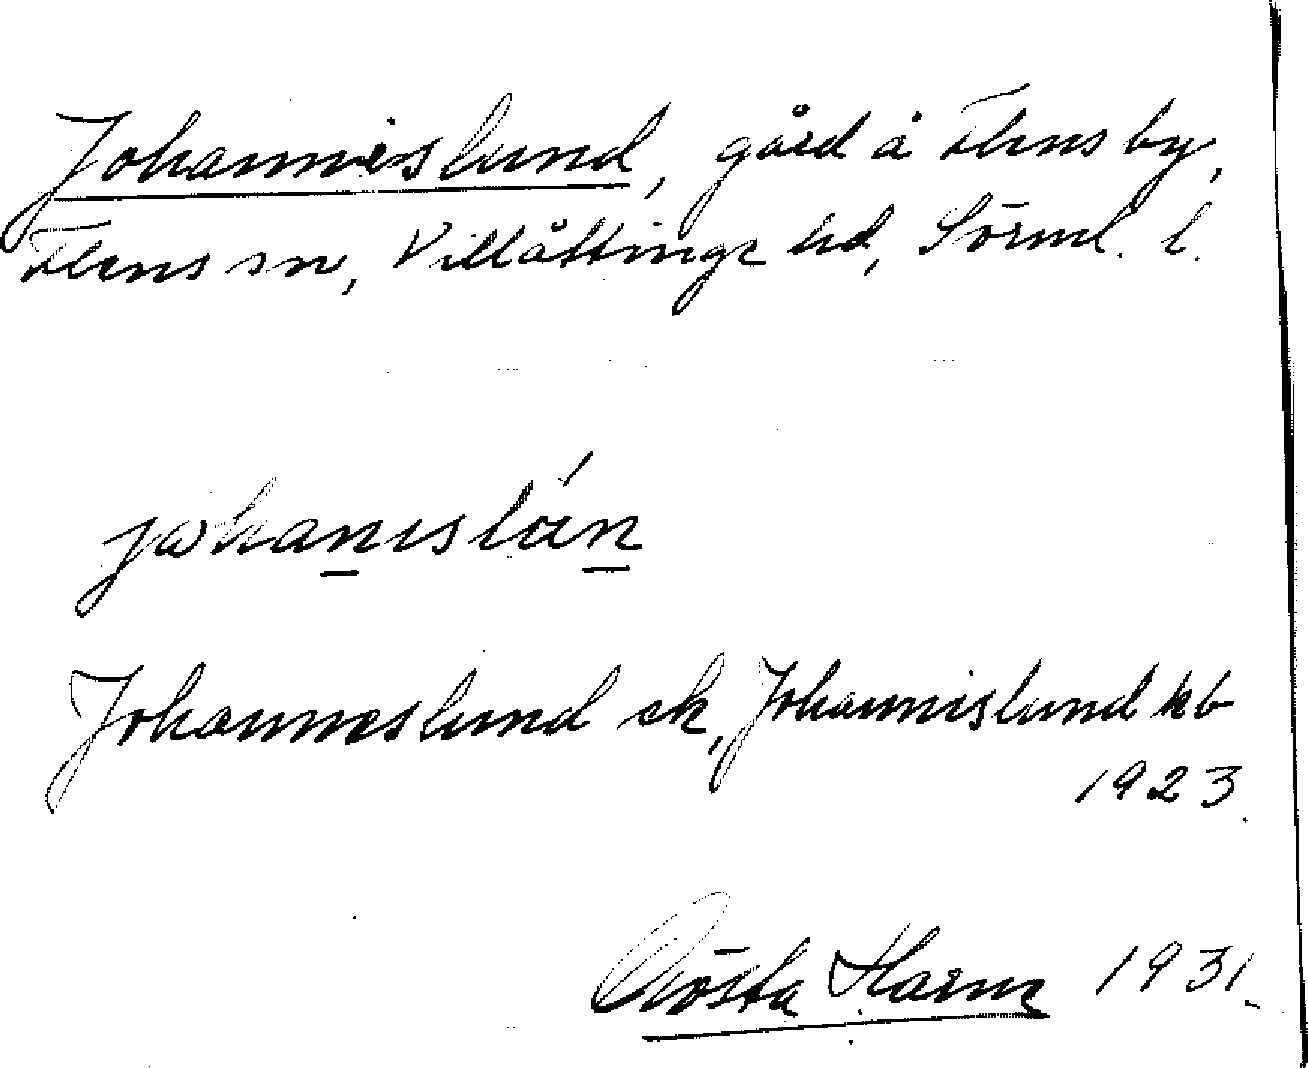 Johannislund, gård å Flens by,
Flens sn, Villåttinge hd, Sörml. l.
johanislún
Johanneslund ek, Johannislund kb
1923.
Gösta Harm 1931.